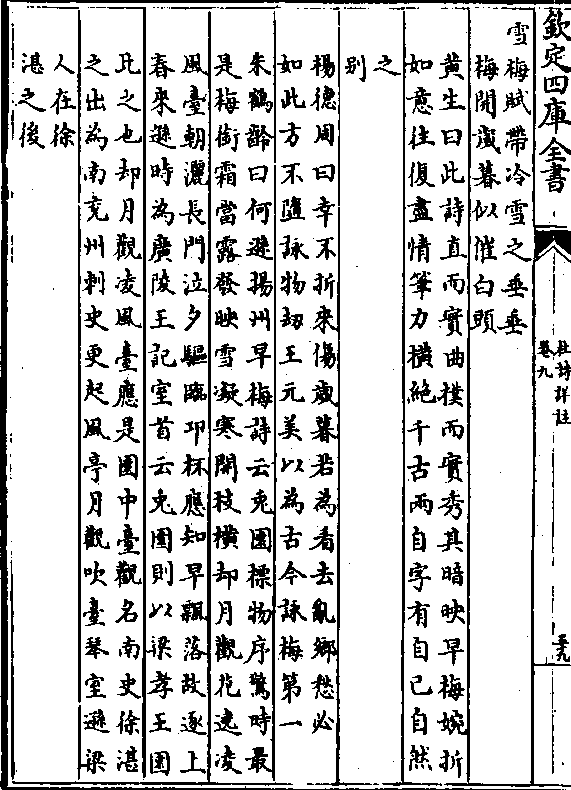 欽定四庫全書
杜詩詳註
卷九
至九
雪梅賦帶冷雪之垂垂
梅開歲暮似催白頭
黄生曰此詩直而實曲樸而實秀其暗映早梅婉折
如意往復盡情筆力横絶千古兩自字有自己自然
之
别
楊德周曰幸不折來傷歲暮若為看去亂鄉愁必
如此方不墮詠物刼王元美以為古今詠梅第一
朱鶴齡曰何遜揚州早梅詩云兎園標物序驚時最
是梅銜霜當露發映雪凝寒開枝横却月觀花遶凌
風臺朝灑長門泣夕驅臨邛杯應知早飄落故逐上
春來遜時為廣陵王記室首云兎園則以梁孝王園
比之也却月觀凌風臺應是園中臺觀名南史徐湛
之出為南兗州刺史更起風亭月觀吹臺琴室遜梁
人在徐
湛之後